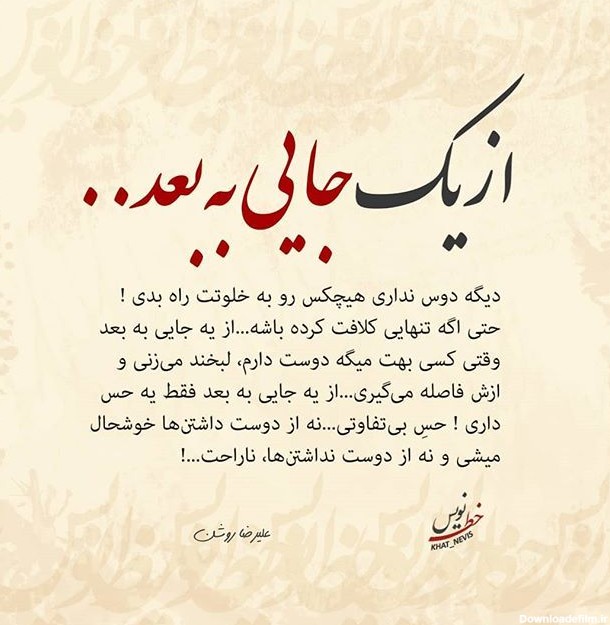 از یک جایی به بعد..
دیگه دوس نداری هیچکس رو به خلوتت راه بدی !
حتی اگه تنهایی کلافت کرده باشه...از یه جایی به بعد
وقتی کسی بهت میگه دوست دارم، لبخند می‌زنی و
ازش فاصله می‌گیری...از یه جایی به بعد فقط یه حس
داری ! حسِ بی‌تفاوتی...نه از دوست داشتن‌ها خوشحال
میشی و نه از دوست نداشتن‌ها، ناراحت...!
خط نویس
KHAT_NEVIS
علیرضا روشن